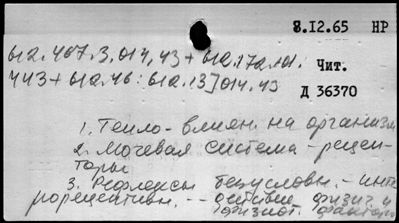 8.12.65 НР
612.467.3,014,43+612.172.101.
443+612.46:612.13]014.43
Чит.
Д 36370
1. Тепло-влиян. на организм
2. Мочевая система - рецеп-
торы
3. Рефлексы безусловн. - инте
рорецептивн. --действие физич. и
физиол. факторов